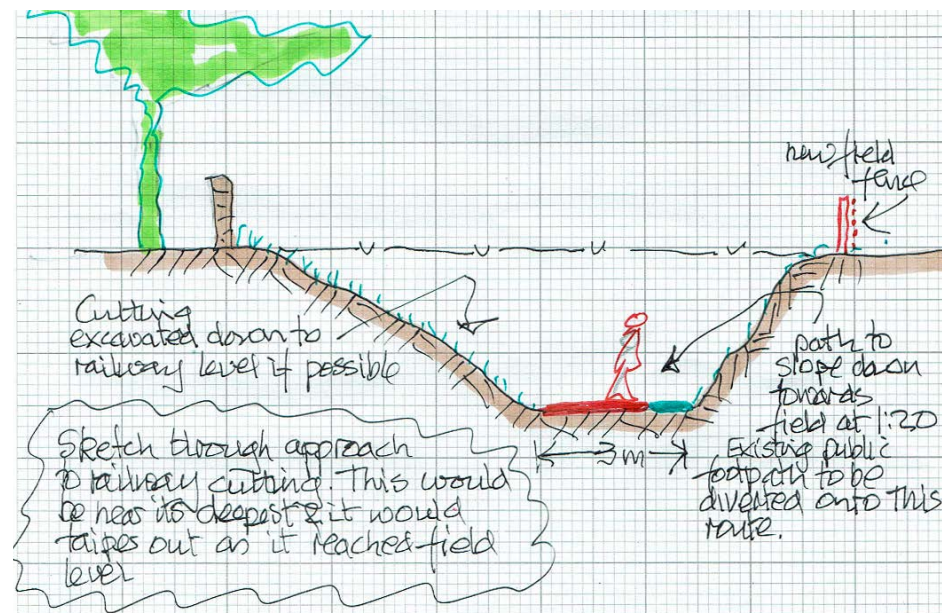 new field
fence
Cutting
excavated down to
railway level if possible
path to
slope down
towards
field at 1:20
Existing public
footpath to be
diverted onto this
route.
3m
Sketch through approach
to railway cutting. This would
be near its deepest & it would
taipes out as it reached field
level